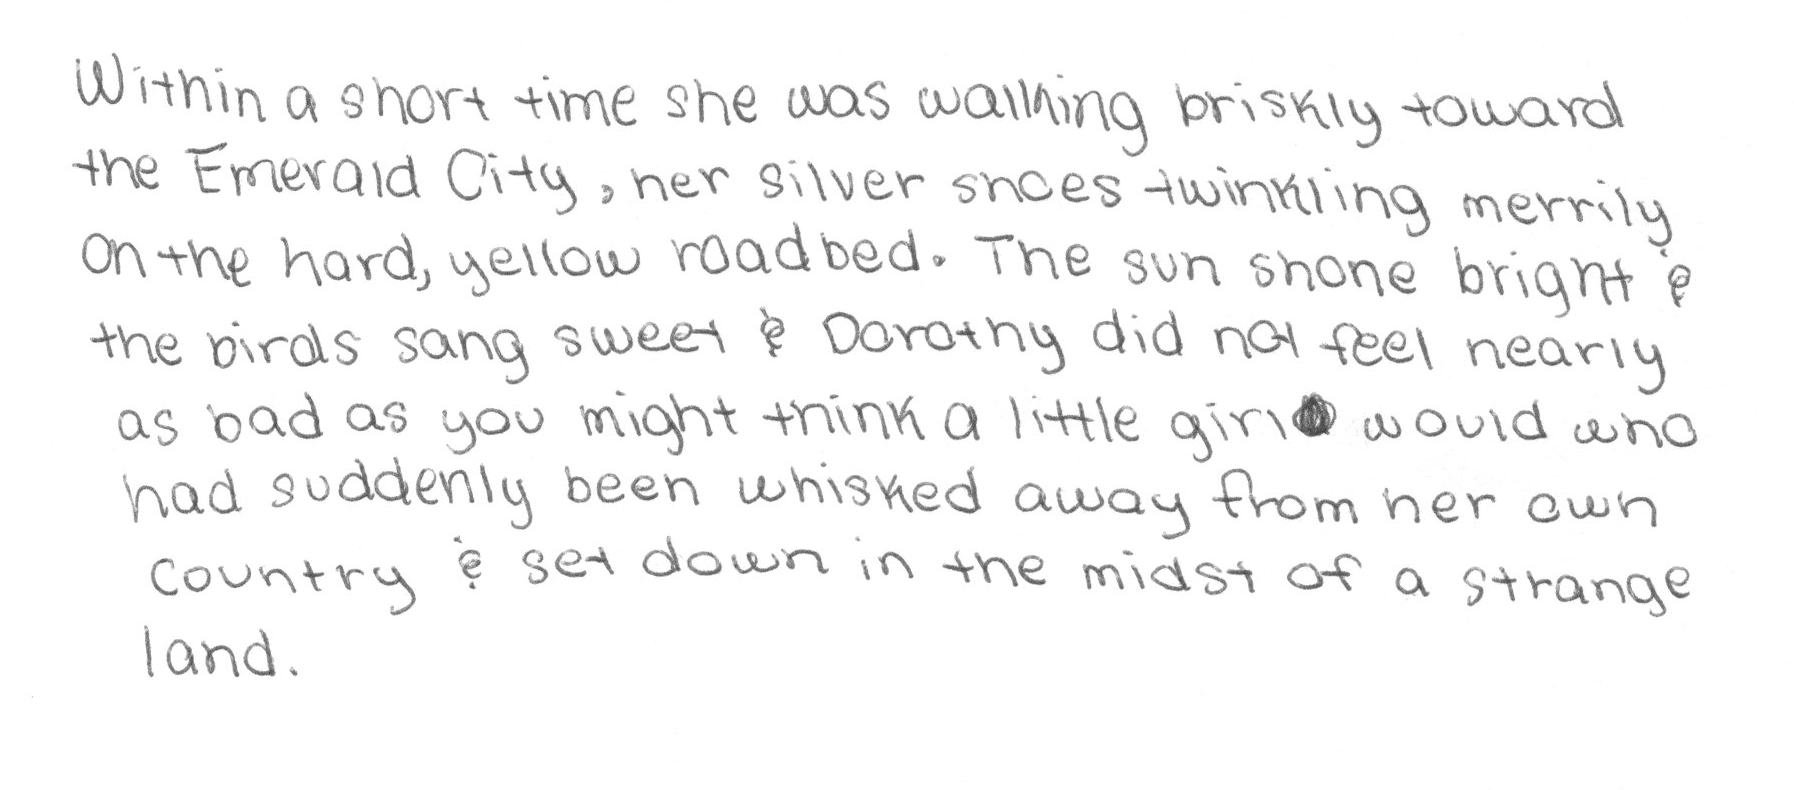 Within a short time she was walking briskly toward
the Emerald City, her silver shoes twinkling merrily
on the hard, yellow roadbed. The sun shone bright &
the birds sang sweet & Dorothy did not feel nearly
as bad as you might think a little girl would who
had suddenly been whisked away from her own
country & set down in the midst of a strange
land.